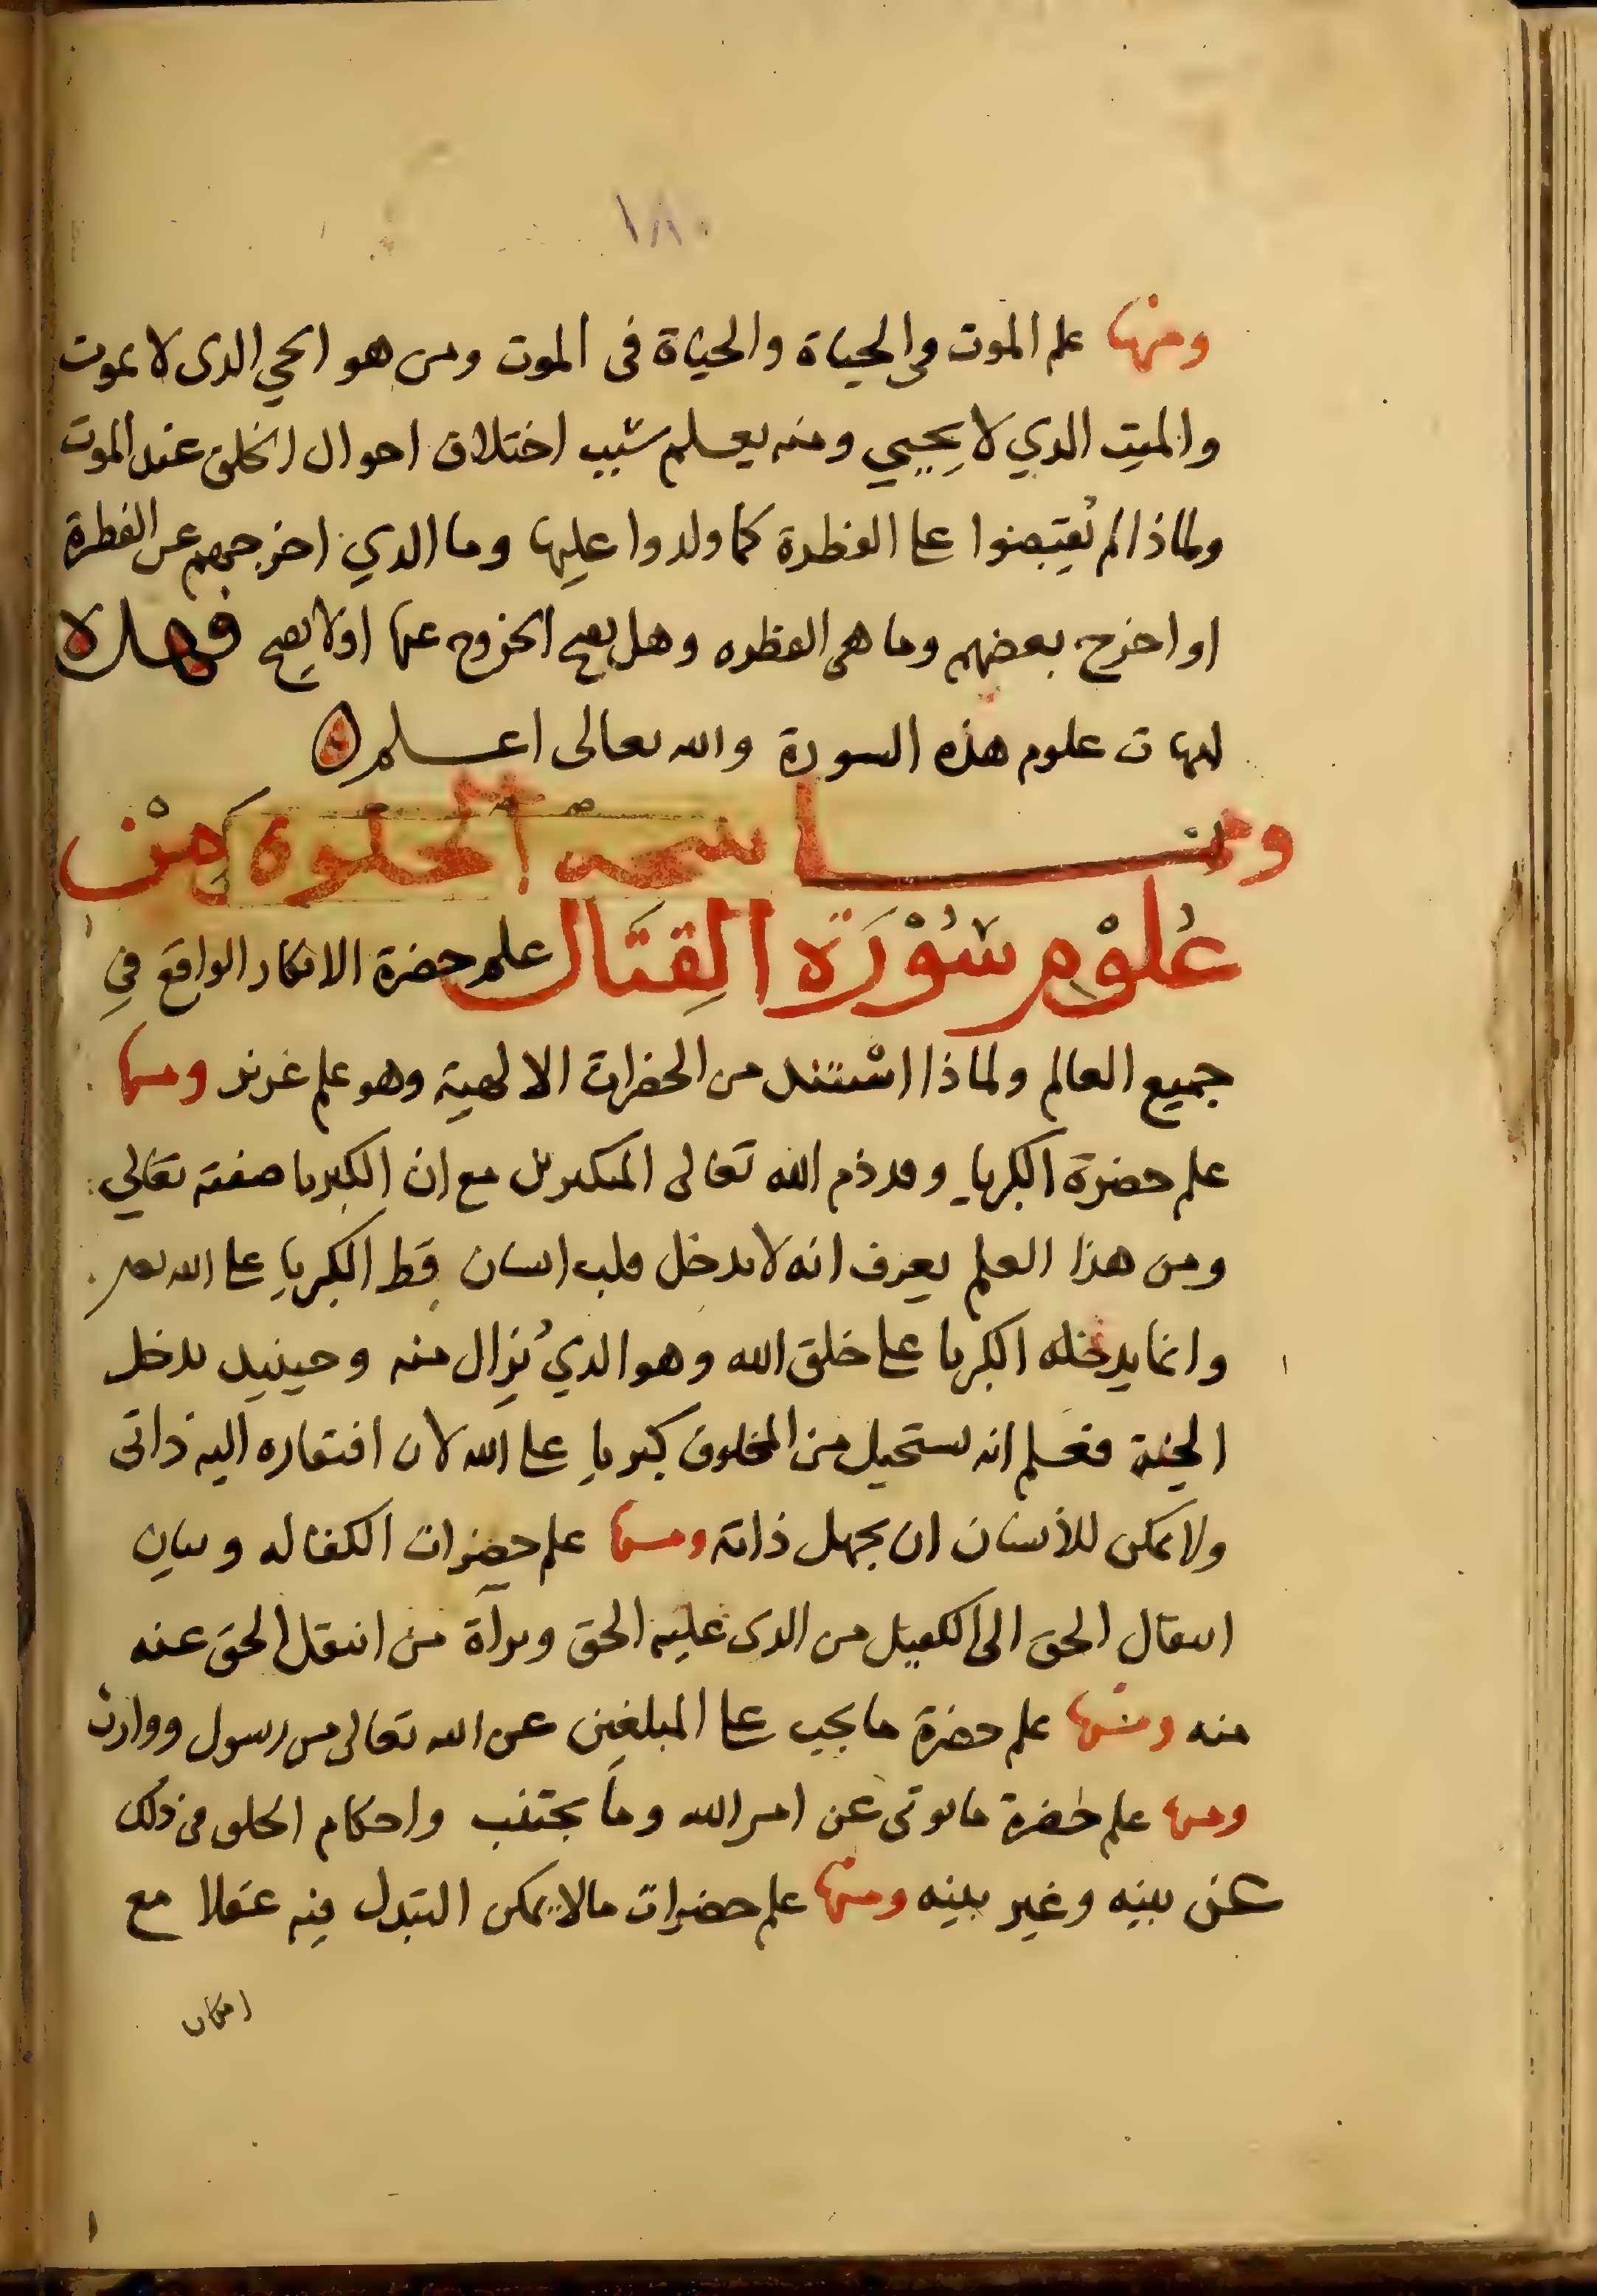 ١٨٠
ومنها علم الموت في الحياة والحياة في الموت ومن هو الحي الدى لا يموت
والميت الدي لا يحيي ومنه يعلم سبب اختلاف احوال الخلق عند الموت
ولماذا لم يُقبضوا على الفطرة كما ولدوا عليها وما الدي اخرجهم عن الفطرة
او اخرج بعضهم وما هي الفطره وهل يصح الخروج عنها او لا يصح فهذه
امهات علوم هذه السورة والله تعالى اعلم
ومما الخلوة مِنْ
عُلوْمِ سُوْرَة القِتَال علم حضرة الانكار الواقع في
جميع العالم ولماذا استند من الحضرات الالهية وهو علم غريز ومنها
علم حضرة الكبرياء وقد ذم الله تعالى المتكبرين مع ان الكبريا صفته تعالي
ومن هذا العلم يعرف انه لا يدخل قلب انسان قط الكبرياء على الله
وانما يدخله الكبريا على خلق الله وهو الدي يُزال منه وحينيد يدخل
الجنة فعلم انه يستحيل من المخلوق كبرياء على الله لان افتقاره اليه ذاتى
ولا يمكن للأنسان ان يجهل ذاته ومنها علم حضرات الكفاله وبيان
انتقال الحق الى الكفيل من الدى عليه الحق وبرآة من انتقل الحق عنه
منه ومنها علم حضرة ما يجب على المبلغين عن الله تعالى من رسول ووارث
ومنها علم حضرة ما يوتى عن امر الله وما يجتنب واحكام الخلق في ذلك
عن بينه وغير بينه ومنها علم حضرات ما لا يمكن التبدل فيه عقلا مع
امكان